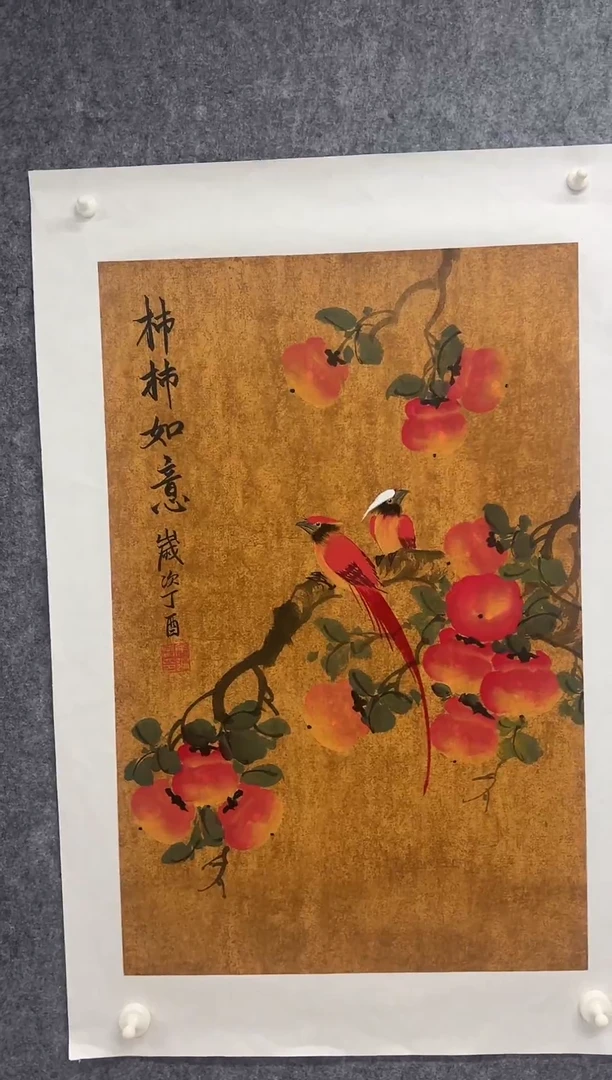 柿柿如意
歲次丁酉